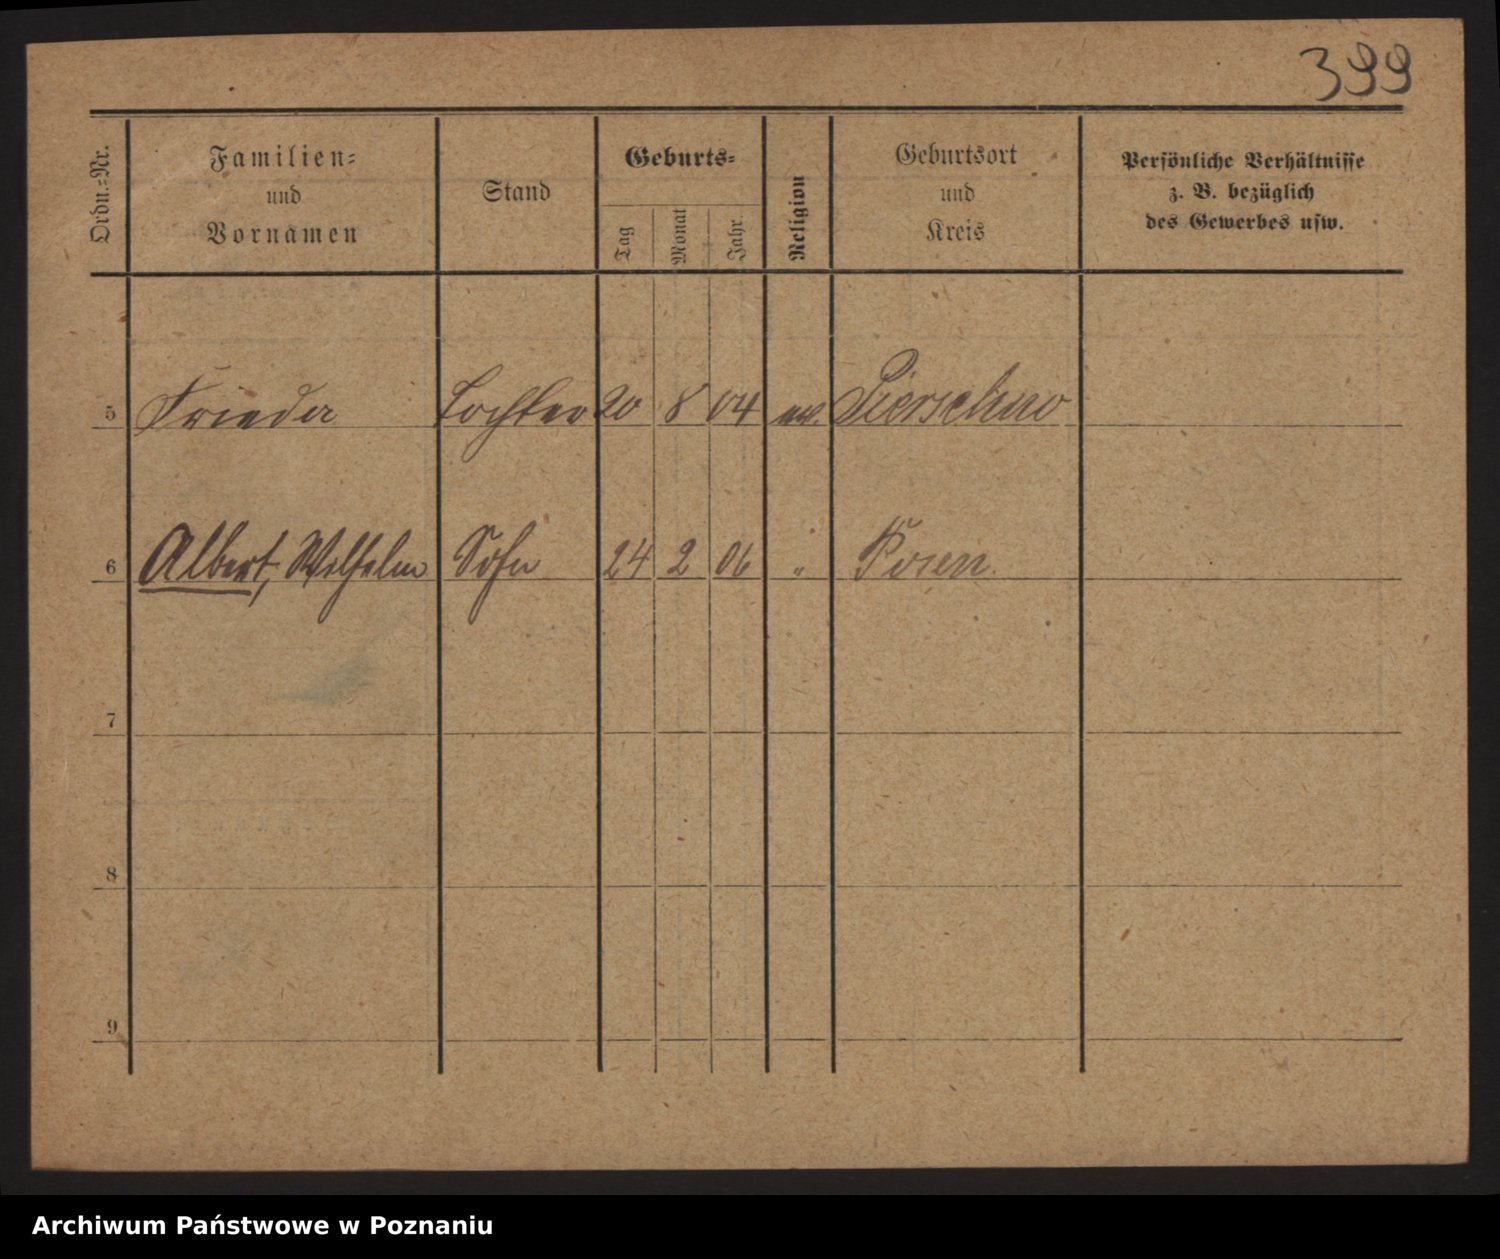 399
Ordn.-Nr.
Familien-
und
Vornamen
Stand
Geburts-
Tag
Monat
Jahr
Religion
Geburtsort
und
Kreis
Persönliche Verhältnisse
z. B. bezüglich
des Gewerbes usw.
5 Frieda Tochter 20 8 04 ev. Pierschno
6 Albert, Wilhelm Sohn 24 2 06 " Posen.
7
8
9
Archiwum Państwowe w Poznaniu